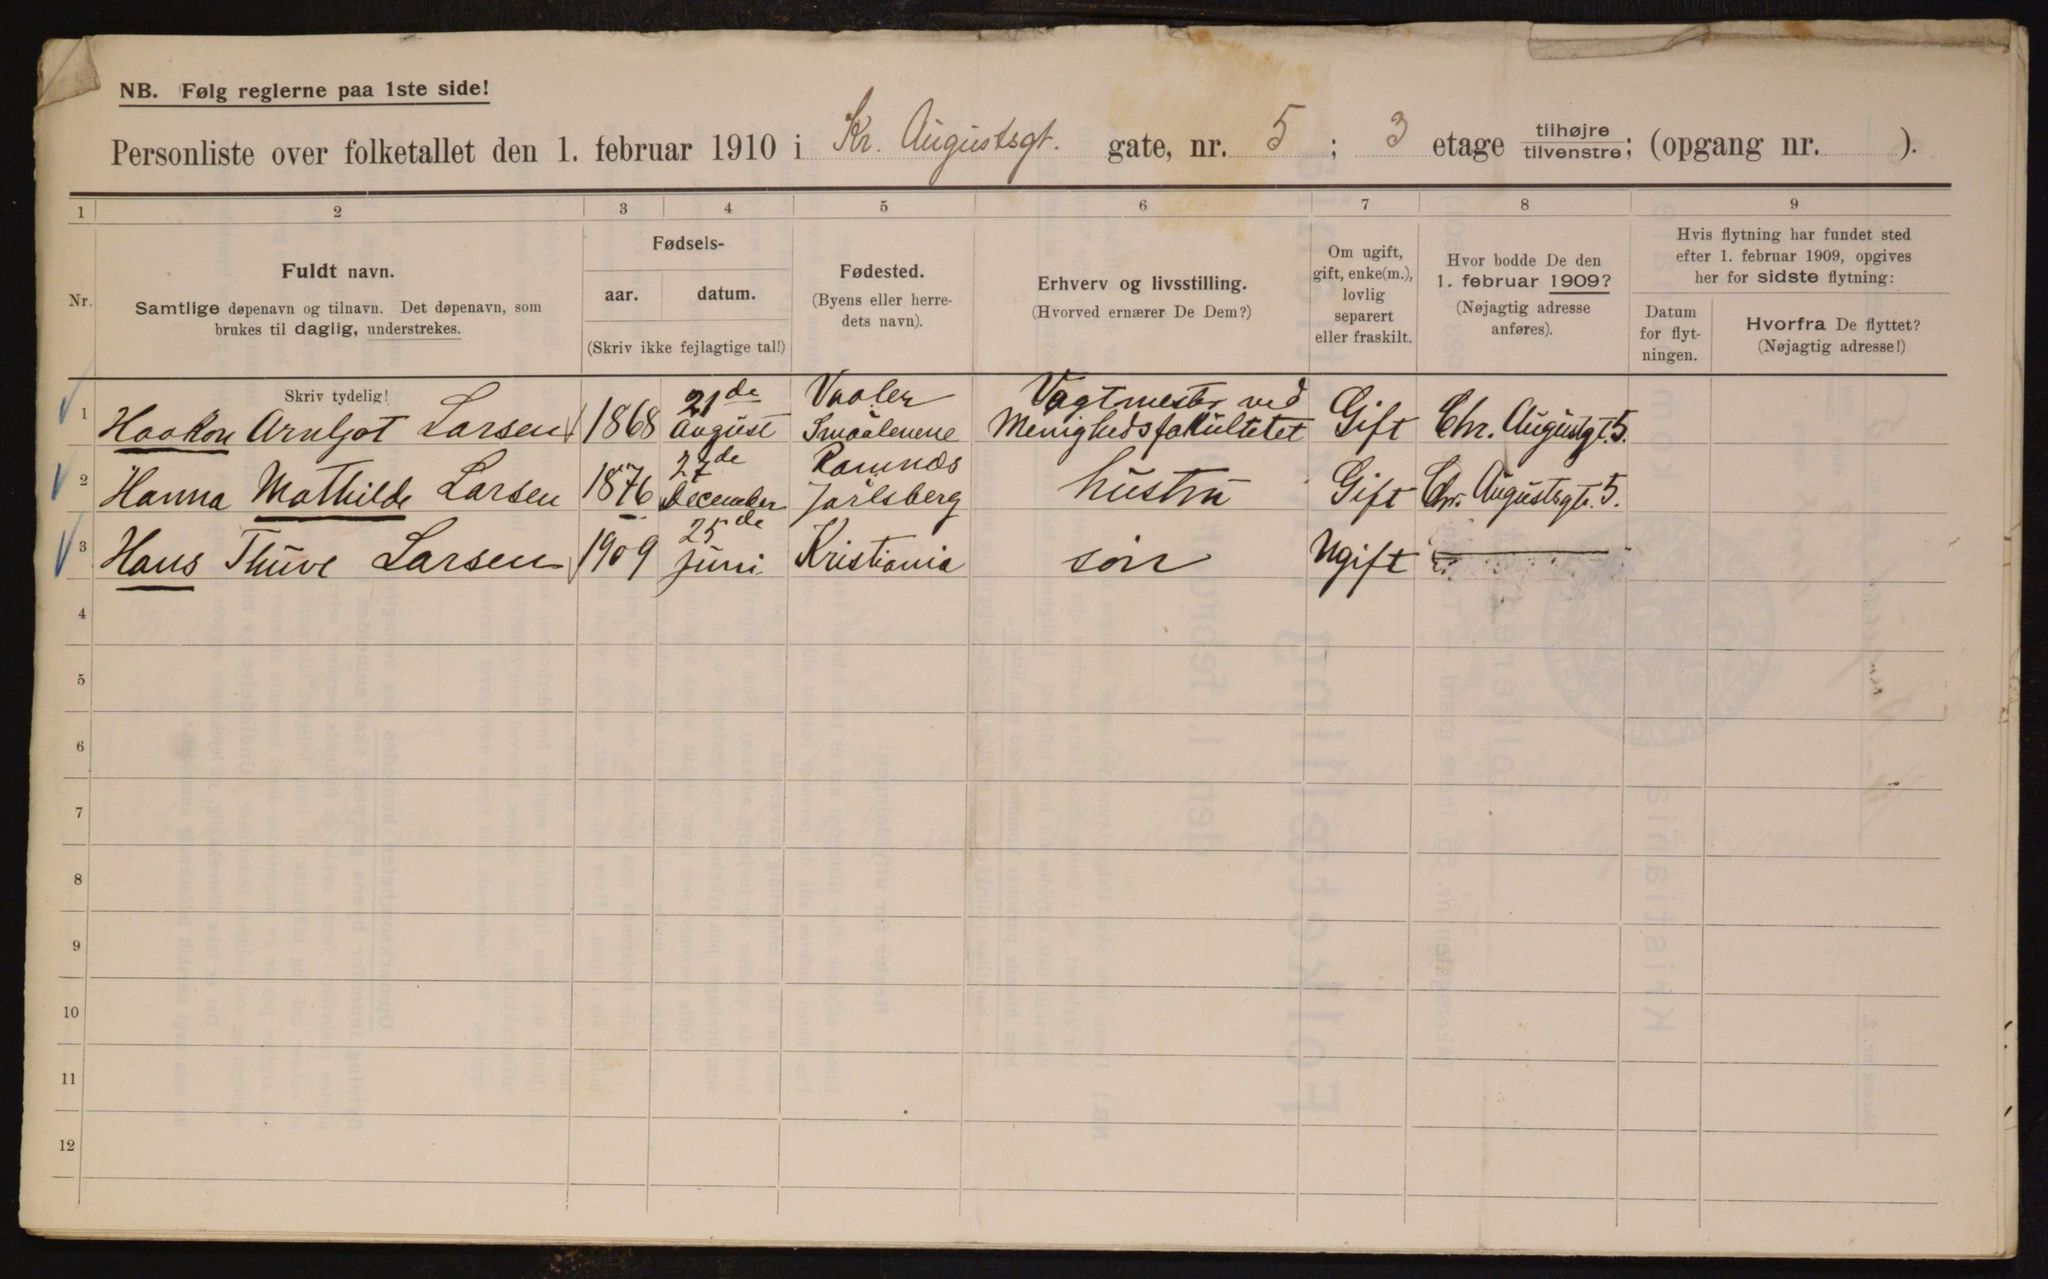 NB. Følg reglerne paa 1ste side!
Personliste over folketallet den 1. februar 1910 i Kr. Augustsgt. gate, nr. 5 ; 3 etage tilhøjre tilvenstre; (opgang nr. ).
1 2 3 4 5 6 7 8 9
Nr.
Fuldt navn.
Samtlige døpenavn og tilnavn. Det døpenavn, som
brukes til daglig, understrekes.
Fødsels-
aar. datum.
(Skriv ikke fejlagtige tal!)
Fødested.
(Byens eller herre-
dets navn).
Erhverv og livsstilling.
(Hvorved ernærer De Dem?)
Om ugift,
gift, enke(m.),
lovlig
separert
eller fraskilt.
Hvor bodde De den
1. februar 1909?
(Nøjagtig adresse
anføres).
Hvis flytning har fundet sted
efter 1. februar 1909, opgives
her for sidste flytning:
Datum
for flyt-
ningen.
Hvorfra De flyttet?
(Nøjagtig adresse!)
Skriv tydelig!
21de Vaaler Vagtmester ved
1 Haakon Arnljot Larsen 1868 August Smaalenene Menighedsfakultetet Gift Chr. Augustgt. 5.
27de Ramnæs
2 Hanna Mathilde Larsen 1876 December Jarlsberg hustru Gift Chr. Augustsgt. 5.
25de
3 Hans Thuve Larsen 1909 juni Kristiania søn Ugift
4
5
6
7
8
9
10
11
12